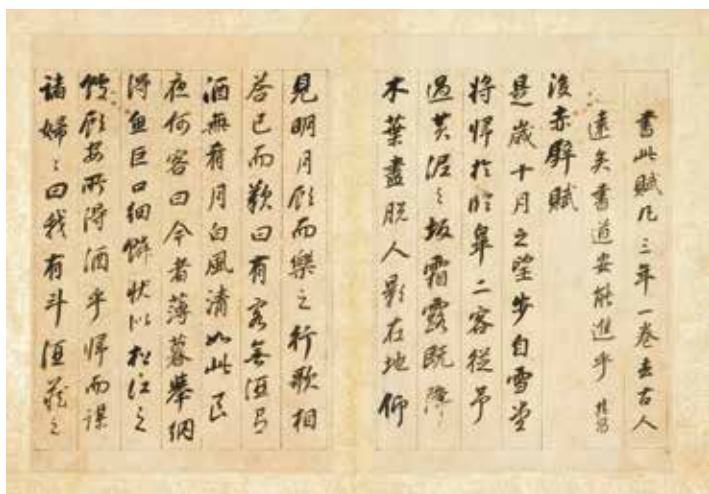 書此賦凡三年一卷去古人
遠矣書道安能進乎 其昌
後赤壁賦
是歲十月之望步自雪堂
將歸於臨皋二客從予
過黃泥之坂霜露既降
木葉盡脫人影在地仰
見明月顧而樂之行歌相
答已而歎曰有客無酒有
酒無肴月白風清如此良
夜何客曰今者薄暮舉網
得魚巨口細鱗狀似松江之
鱸顧安所得酒乎歸而謀
諸婦婦曰我有斗酒藏之